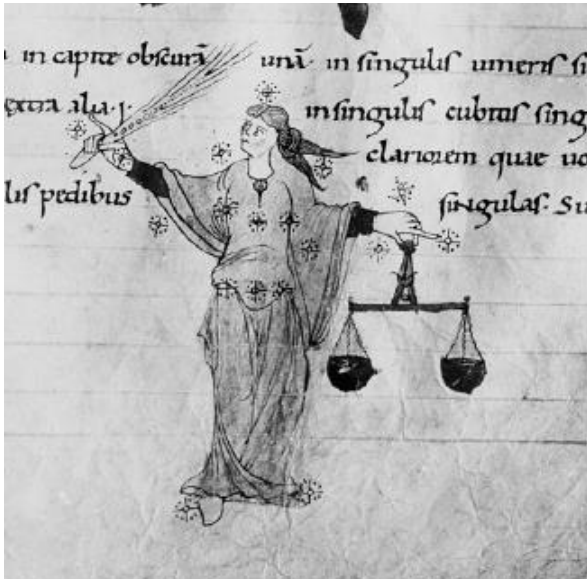 in capite obscurā unā in singulis umeris si
extra alia .i. in singulis cubitis sing
clariorem quae uo
lis pedibus singulas. Su